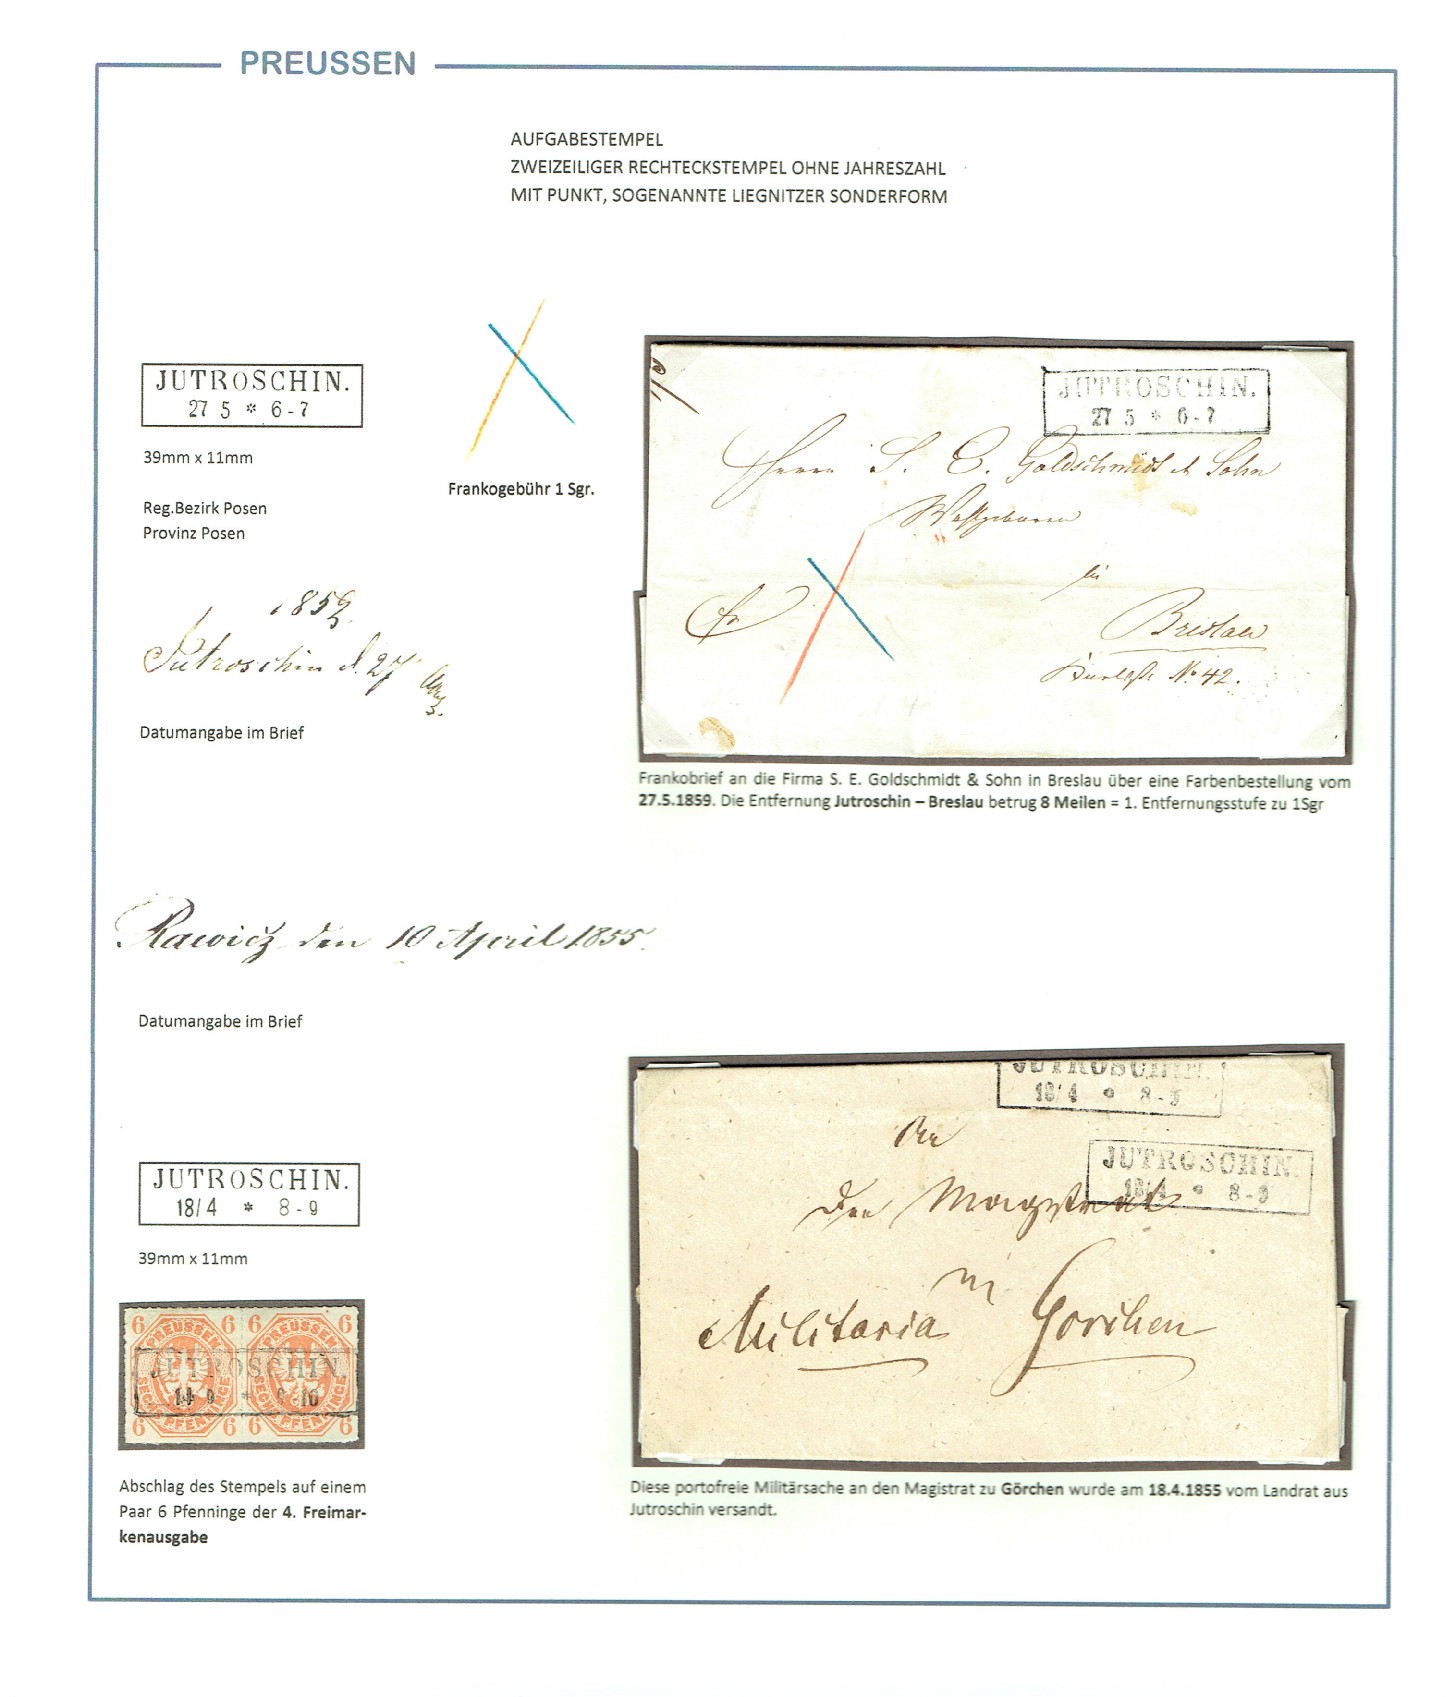 PREUSSEN
AUFGABESTEMPEL
ZWEIZEILIGER RECHTECKSTEMPEL OHNE JAHRESZAHL
MIT PUNKT, SOGENANNTE LIEGNITZER SONDERFORM
JUTROSCHIN.
27 5 * 6-7
39mm x 11mm
Reg.Bezirk Posen
Provinz Posen
Frankogebühr 1 Sgr.
1859.
Jutroschin d. 27
Datumangabe im Brief
JUTROSCHIN.
27 5 * 6-7
Herrn S. E. Goldschmidt & Sohn
Wohlgeboren
in
Breslau
No 42.
fr
Frankobrief an die Firma S. E. Goldschmidt & Sohn in Breslau über eine Farbenbestellung vom
27.5.1859. Die Entfernung Jutroschin – Breslau betrug 8 Meilen = 1. Entfernungsstufe zu 1Sgr
Rawicz den 10 April 1855.
Datumangabe im Brief
JUTROSCHIN.
18/4 * 8-9
39mm x 11mm
JUTROSCHIN.
18/4 * 8-9
JUTROSCHIN.
18/4 * 8-9
An
Den Magistrat
in
Militaria Gorchen
6 PREUSSEN 6 6 PREUSSEN 6
JUTROSCHIN.
6 SECHS PFENNINGE 6 6 SECHS PFENNINGE 6
Abschlag des Stempels auf einem
Paar 6 Pfenninge der 4. Freimar-
kenausgabe
Diese portofreie Militärsache an den Magistrat zu Görchen wurde am 18.4.1855 vom Landrat aus
Jutroschin versandt.